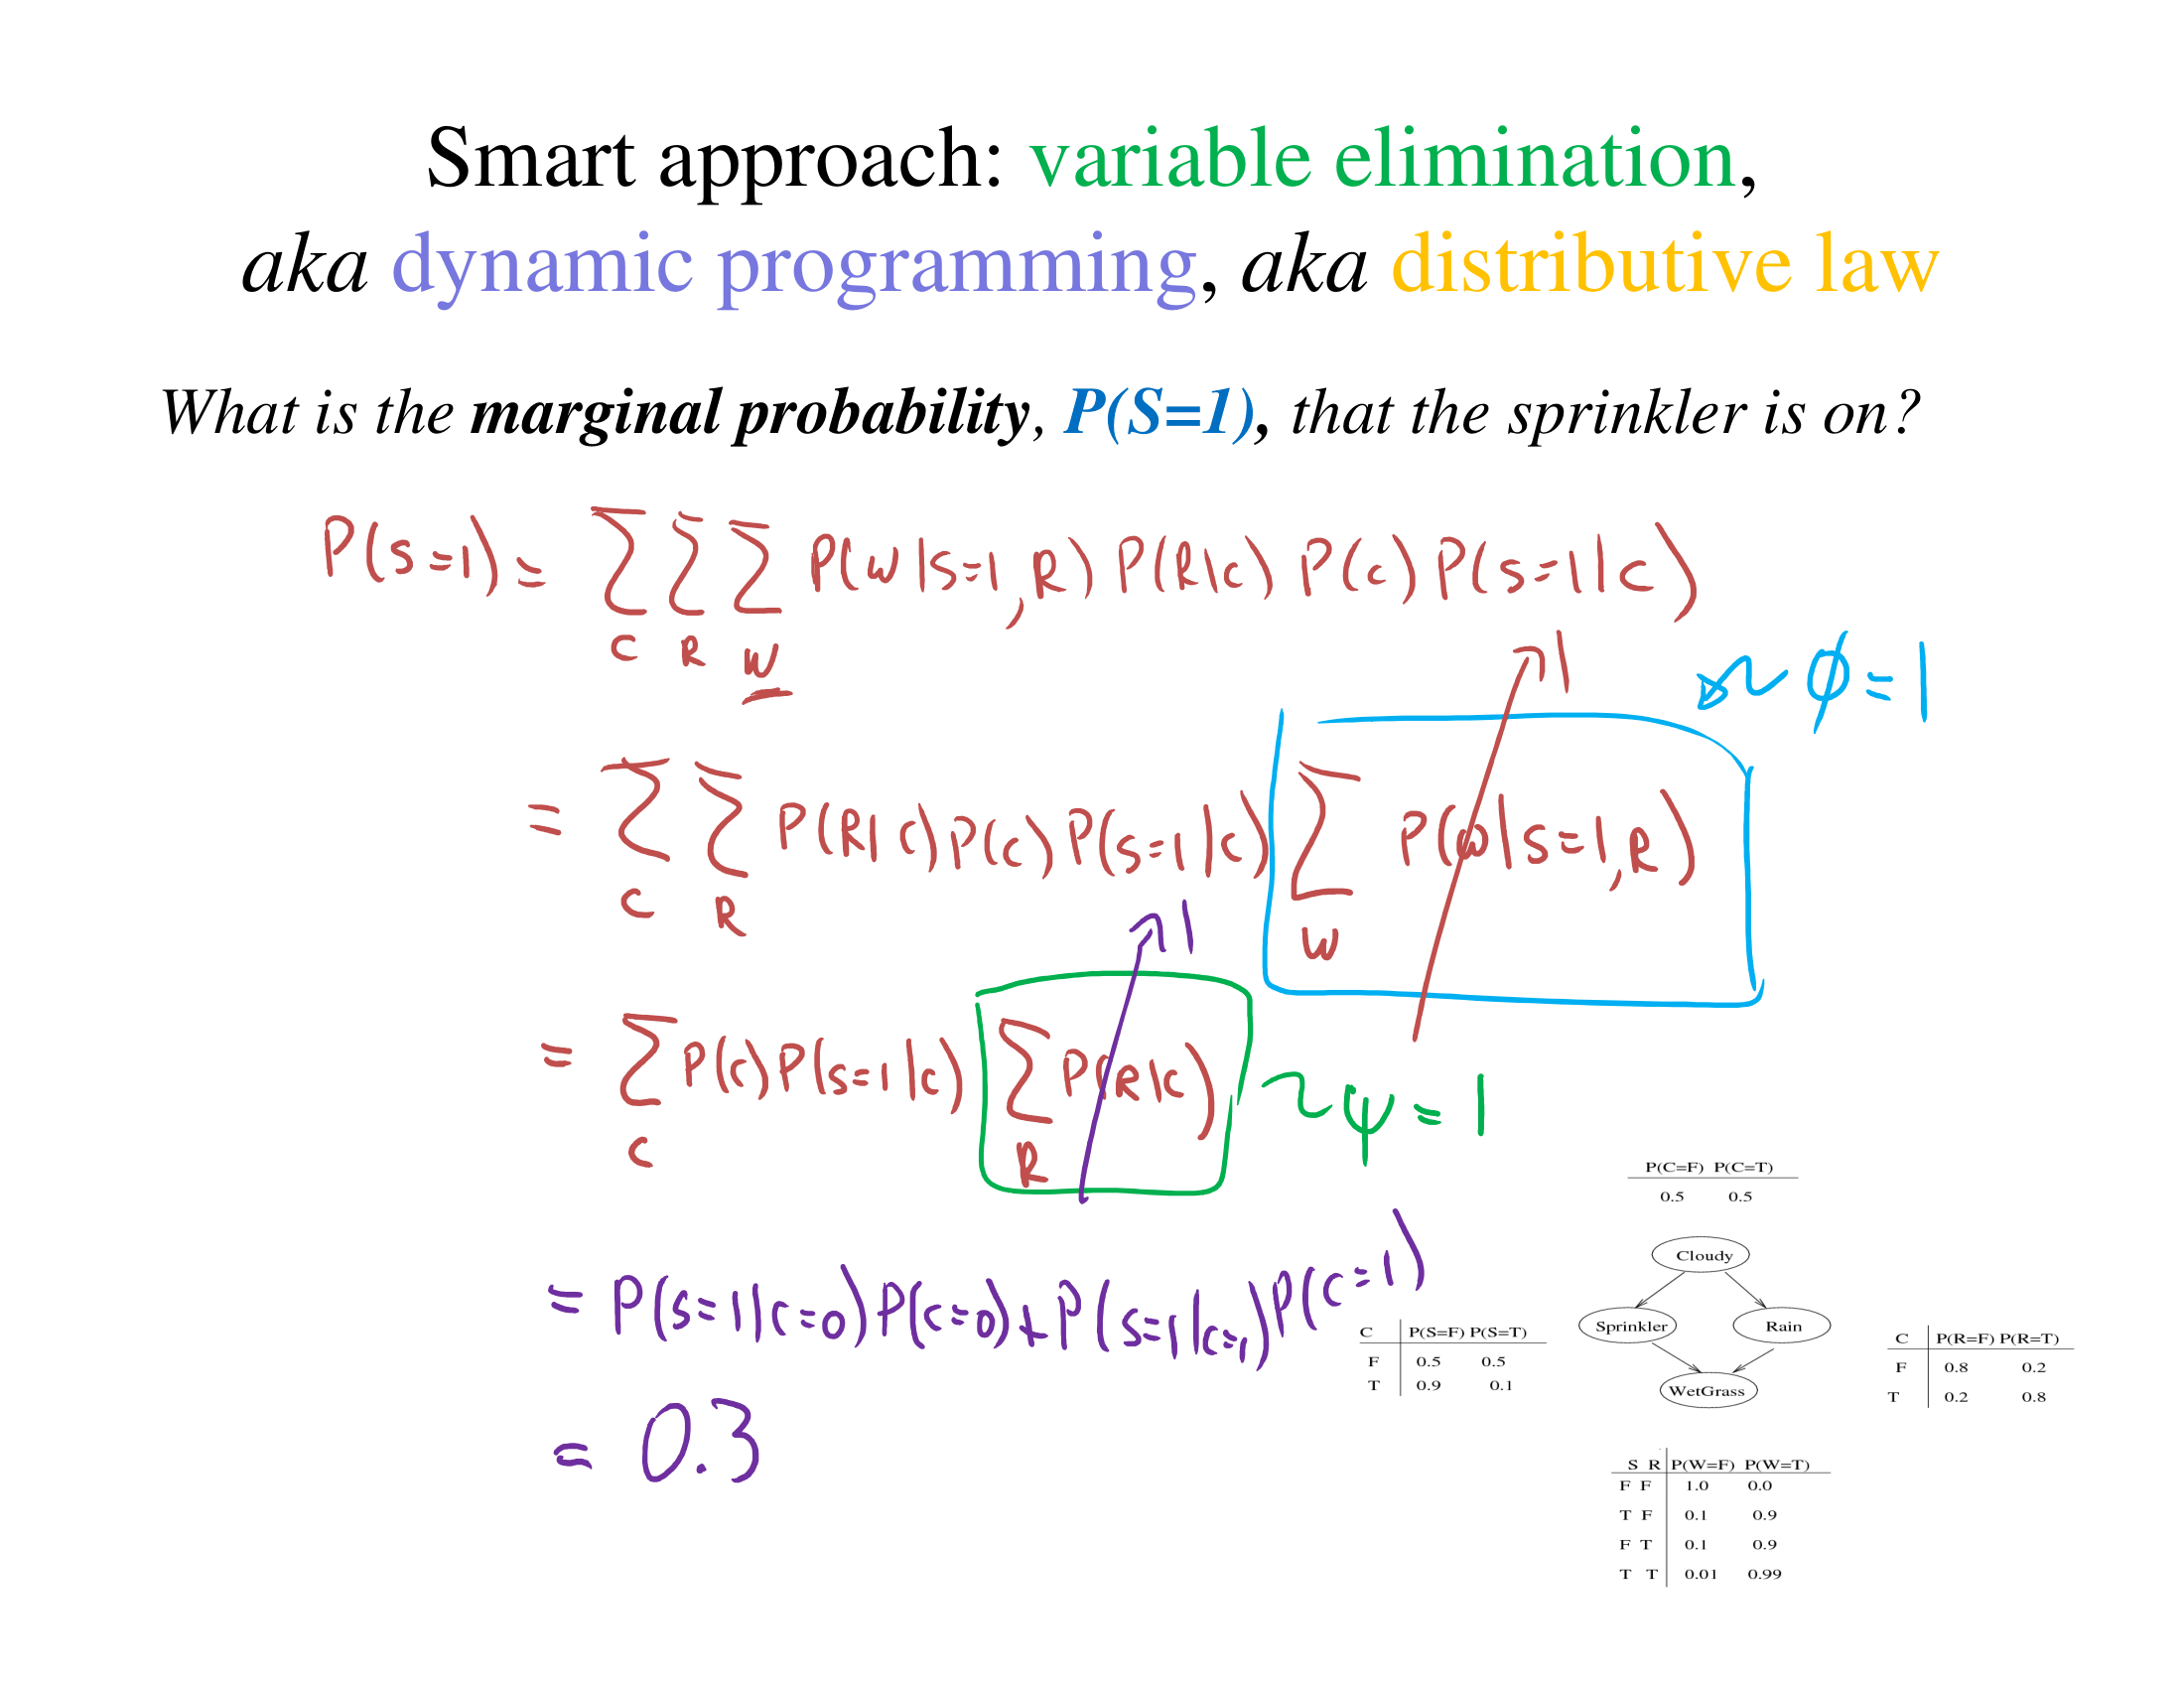 Smart approach: variable elimination,
aka dynamic programming, aka distributive law
What is the marginal probability, P(S=1), that the sprinkler is on?
P(S=1) = Σ_C Σ_R Σ_W P(W|S=1,R) P(R|C) P(C) P(S=1|C)
= Σ_C Σ_R P(R|C) P(C) P(S=1|C) Σ_W P(W|S=1,R)
1
~ φ = 1
= Σ_C P(C) P(S=1|C) Σ_R P(R|C)
1
~ ψ = 1
= P(S=1|C=0) P(C=0) + P(S=1|C=1) P(C=1)
= 0.3
P(C=F) P(C=T)
0.5 0.5
Cloudy
Sprinkler
Rain
WetGrass
C P(S=F) P(S=T)
F 0.5 0.5
T 0.9 0.1
C P(R=F) P(R=T)
F 0.8 0.2
T 0.2 0.8
S R P(W=F) P(W=T)
F F 1.0 0.0
T F 0.1 0.9
F T 0.1 0.9
T T 0.01 0.99